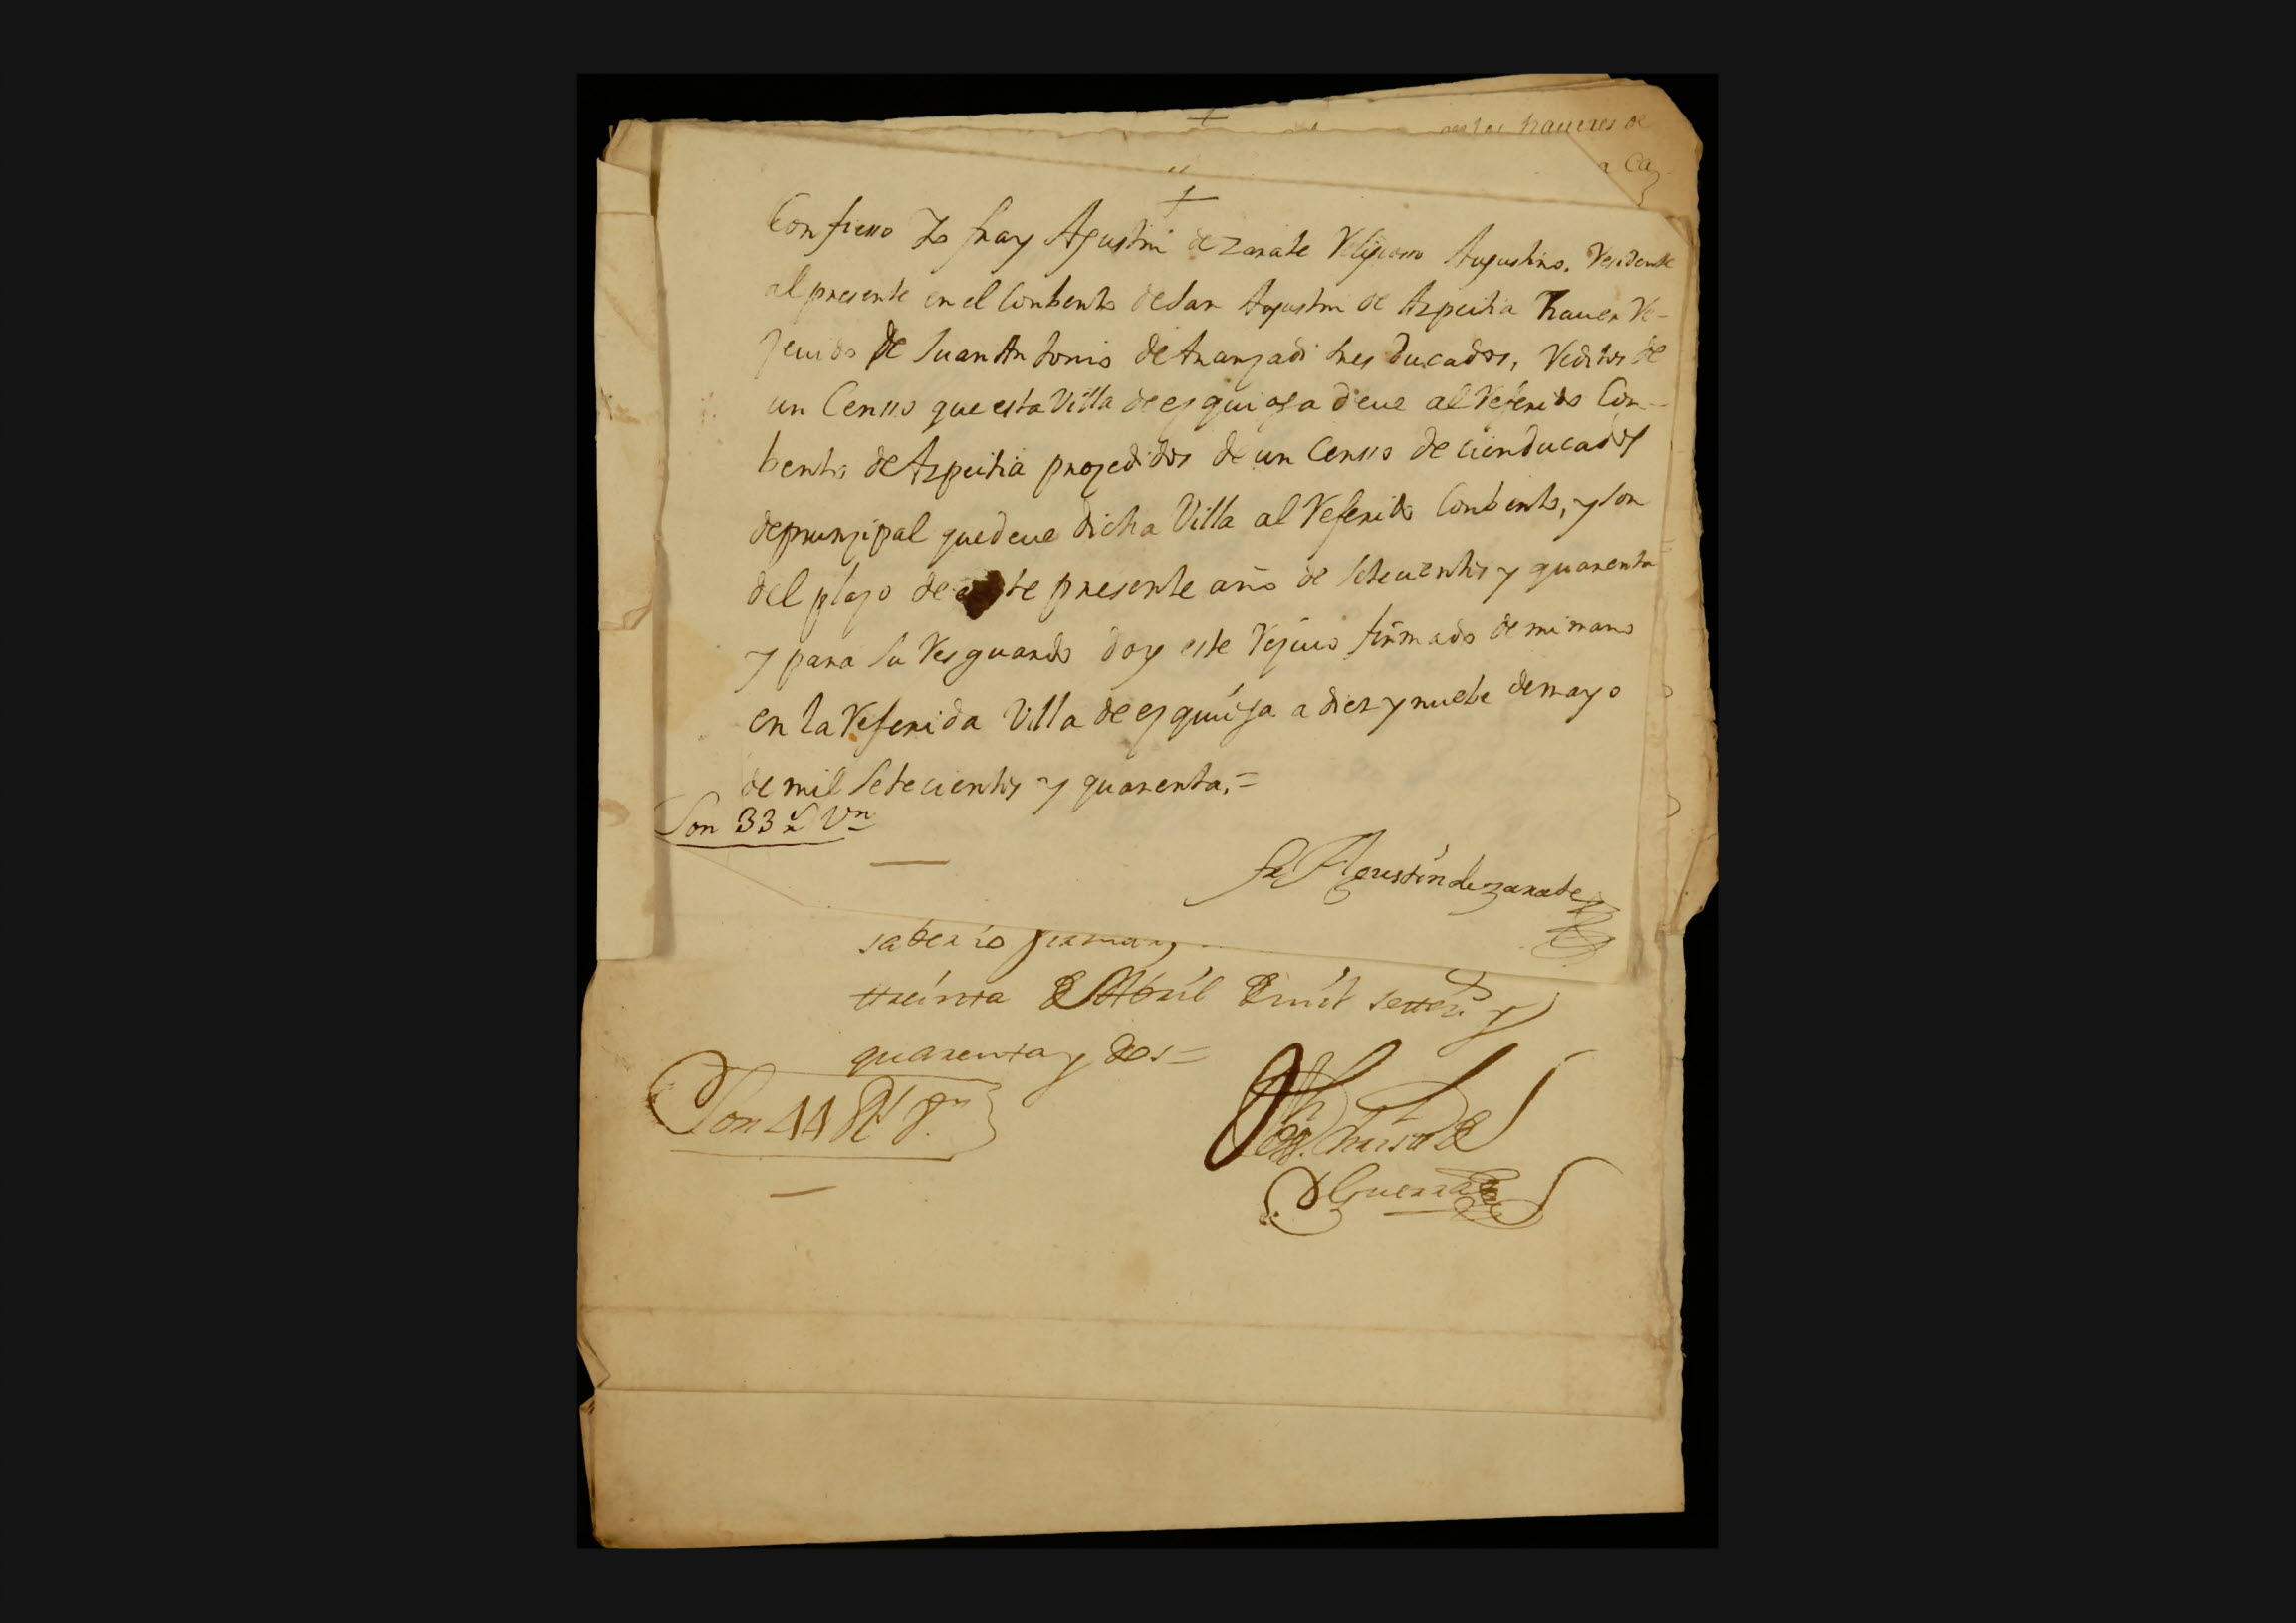 haueres de
a Ca
+
Confiesso Yo fray Agustin de Zarate Religiosso Augustino. Residente
al presente en el Conbento de San Agustin de Azpeitia hauer Re-
zeuido de Juan Antonio de Aranzadi tres Ducados, Reditos de
un Censso que esta Villa de ezquioga deue al Referido Con-
bento de Azpeitia prozedidos de un Censso de cien Ducados
de prinzipal que deue dicha Villa al Referido Conbento, y son
del plazo de este presente año de Setecientos y quarenta
y para su Resguardo doy este Reziuo firmado de mi mano
en la Referida Villa de ezquioga a diez y nuebe de mayo
de mil Setecientos y quarenta.=
Son 33 Rs Vn
fr Agustin de zarate
saber io firmar,
treinta de Abril de mil setteci y
quarenta y dos=
Son 44 Rs Vn